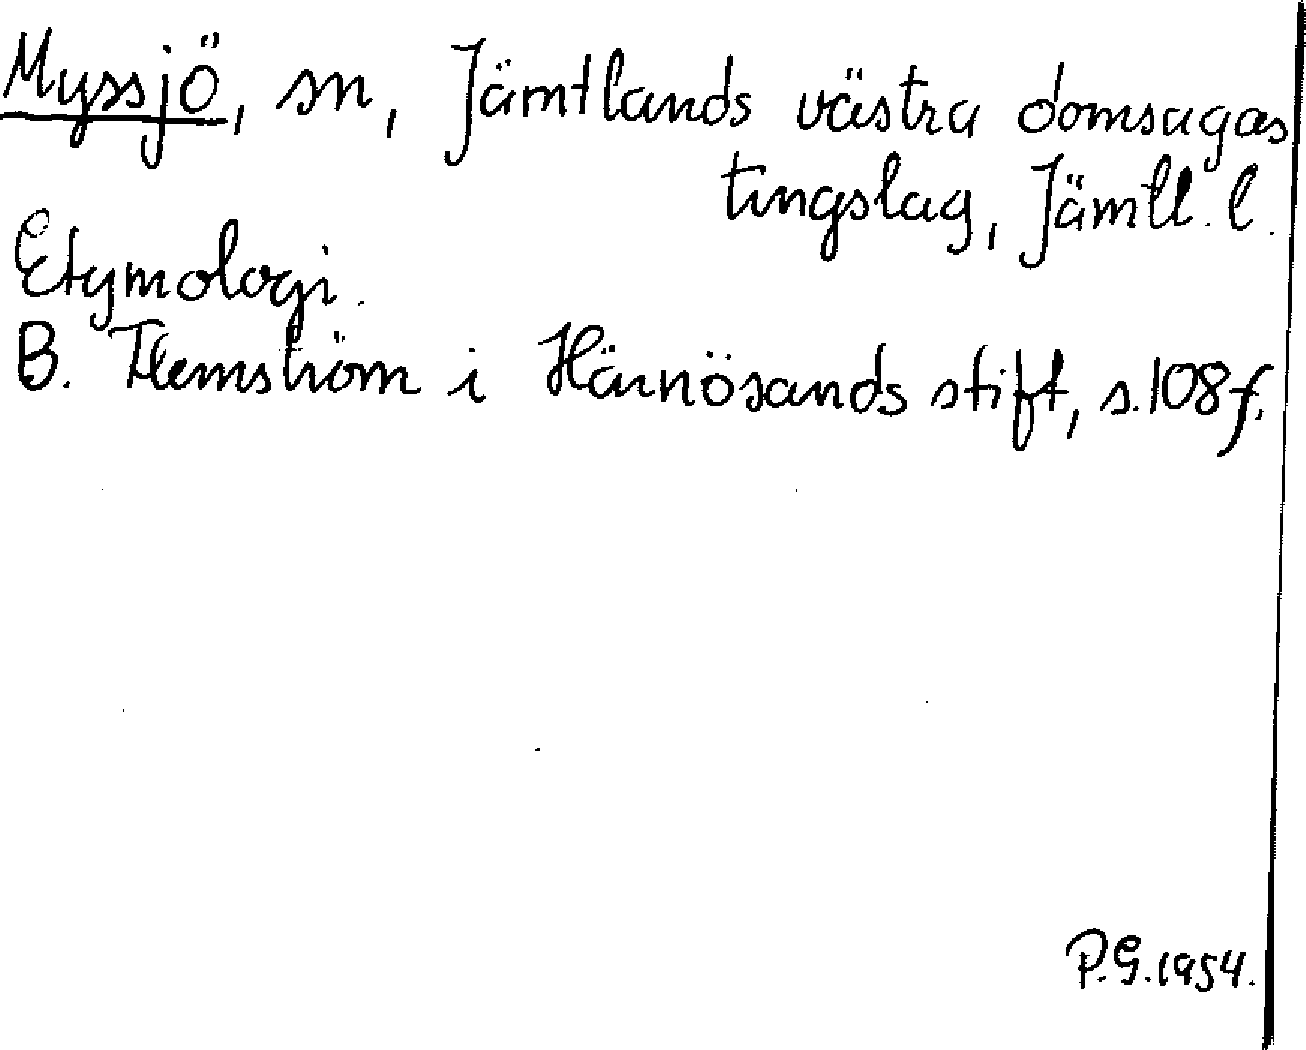 Myssjö, sn, Jämtlands västra domsagas
tingslag, Jämtl. l.
Etymologi.
B. Flemström i Härnösands stift, s. 108 f.
P.G. 1954.